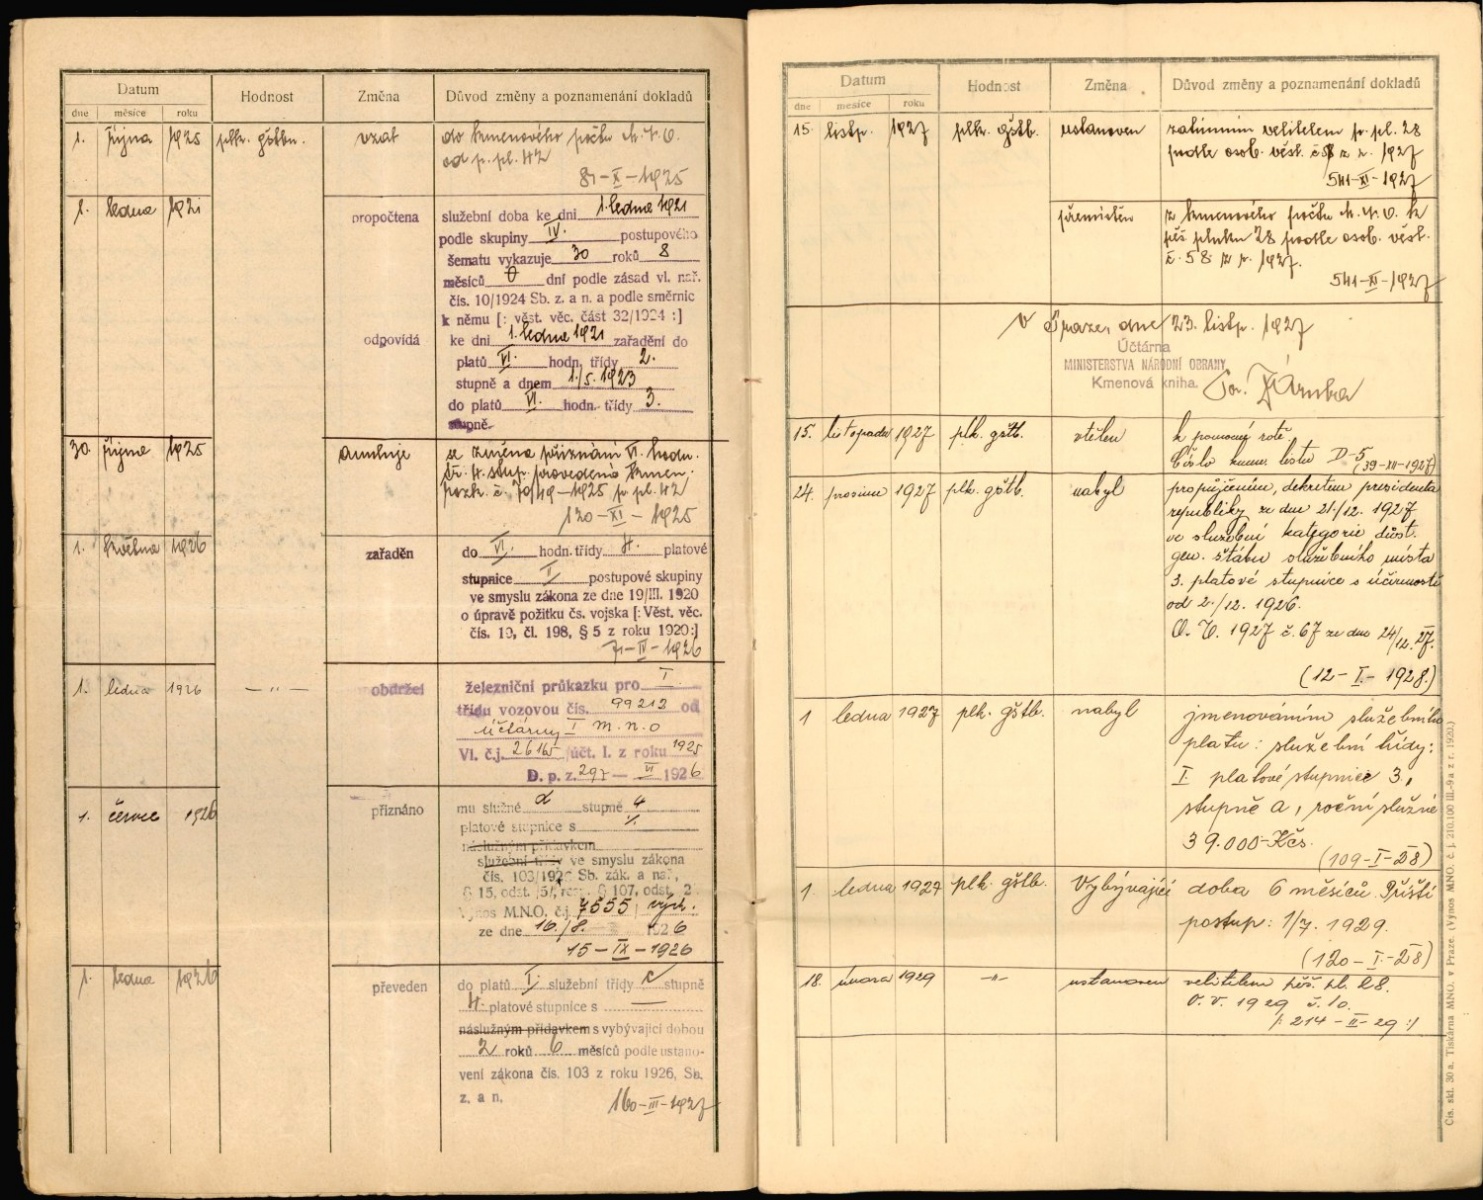 Datum
Hodnost
Změna
Důvod změny a poznamenání dokladů
dne
měsíce
roku
1. října 1925 plk. gštbu. vzat do kmenového počtu M.N.O.
od p. pl. 42
81-X-1925
1. ledna 1921 propočtena služební doba ke dni 1. ledna 1921
podle skupiny IV. postupového
šematu vykazuje 30 roků 8
měsíců 0 dní podle zásad vl. nař.
čís. 10/1924 Sb. z. a n. a podle směrnic
k němu [: věst. věc. část 32/1924 :]
odpovídá ke dni 1. ledna 1921 zařadění do
platů VI. hodn. třídy 2.
stupně a dnem 1./5. 1923
do platů VI. hodn. třídy 3.
stupně.
30. října 1925 anuluje se změna přiznání VI. hodn.
tř. 4. stup. provedená kmen.
rozk. č. 70/49-1925 p. pl. 42
120-XI-1925
1. května 1926 zařaděn do VI. hodn. třídy 4. platové
stupnice I postupové skupiny
ve smyslu zákona ze dne 19/III. 1920
o úpravě požitku čs. vojska [: Věst. věc.
čís. 19, čl. 198, § 5 z roku 1920:]
71-IV-1926
1. ledna 1926 — " — obdržel železniční průkazku pro I
třídu vozovou čís. 99213 od
účtárny I m.n.o
Vl. č.j. 26165 účt. I. z roku 1925
D. p. z. 297 — VI 1926
1. červec 1926 přiznáno mu služné d stupně 4
platové stupnice s
náslužným přídavkem
služební třídy ve smyslu zákona
čís. 103/1926 Sb. zák. a nař.,
§ 15, odst. /5/, resp. § 107, odst. 2
Výnos M.N.O. č.j. 7555 vých.
ze dne 16./8. 1926
15-IX-1926
1. ledna 1926 převeden do platů I. služební třídy c stupně
4. platové stupnice s —
náslužným přídavkem s vybývající dobou
2 roků 6 měsíců podle ustano-
vení zákona čís. 103 z roku 1926, Sb.
z. a n.
160-III-1927
Datum
Hodnost
Změna
Důvod změny a poznamenání dokladů
dne
mesíce
roku
15. listp. 1927 plk. gštb. ustanoven zatímním velitelem p. pl. 28
podle osob. věst. č. 58 z r. 1927
541-XI-1927
přemístěn z kmenového počtu M.N.O. k
pěš. pluku 28 podle osob. věst.
č. 58 z r. 1927.
541-XI-1927
V Praze, dne 23. listp. 1927
Účtárna
MINISTERSTVA NÁRODNÍ OBRANY
Kmenová kniha.
15. listopadu 1927 plk. gštb. vtělen k pomocný rotě.
Číslo kmen. listu D-5 (39-XII-1927)
24. prosince 1927 plk. gštb. nabyl propůjčením, dekretem presidenta
republiky ze dne 21./12. 1927
ve služební kategorii důst.
gen. štábu služebního místa
3. platové stupnice s účinností
od 2./12. 1926.
O. V. 1927 č. 67 ze dne 24/12. 27.
(12-I-1928.)
1 ledna 1927 plk. gštb. nabyl jmenováním služebního
platu: služební třídy:
I platové stupnice 3,
stupně a, roční služné
39.000 Kčs.
(109-I-28)
1. ledna 1927 plk. gštb. Vybývající doba 6 měsíců. Příští
postup: 1/7. 1929.
(120-I-28)
18. února 1929 —"— ustanoven velitelem pěš. pl. 28.
O. V. 1929 č. 10.
/: 214-II-29 :/
Čís. skl. 30 a. Tiskárna MNO. v Praze. (Výnos MNO. č. j. 210.100 III.-9 a z r. 1920.)